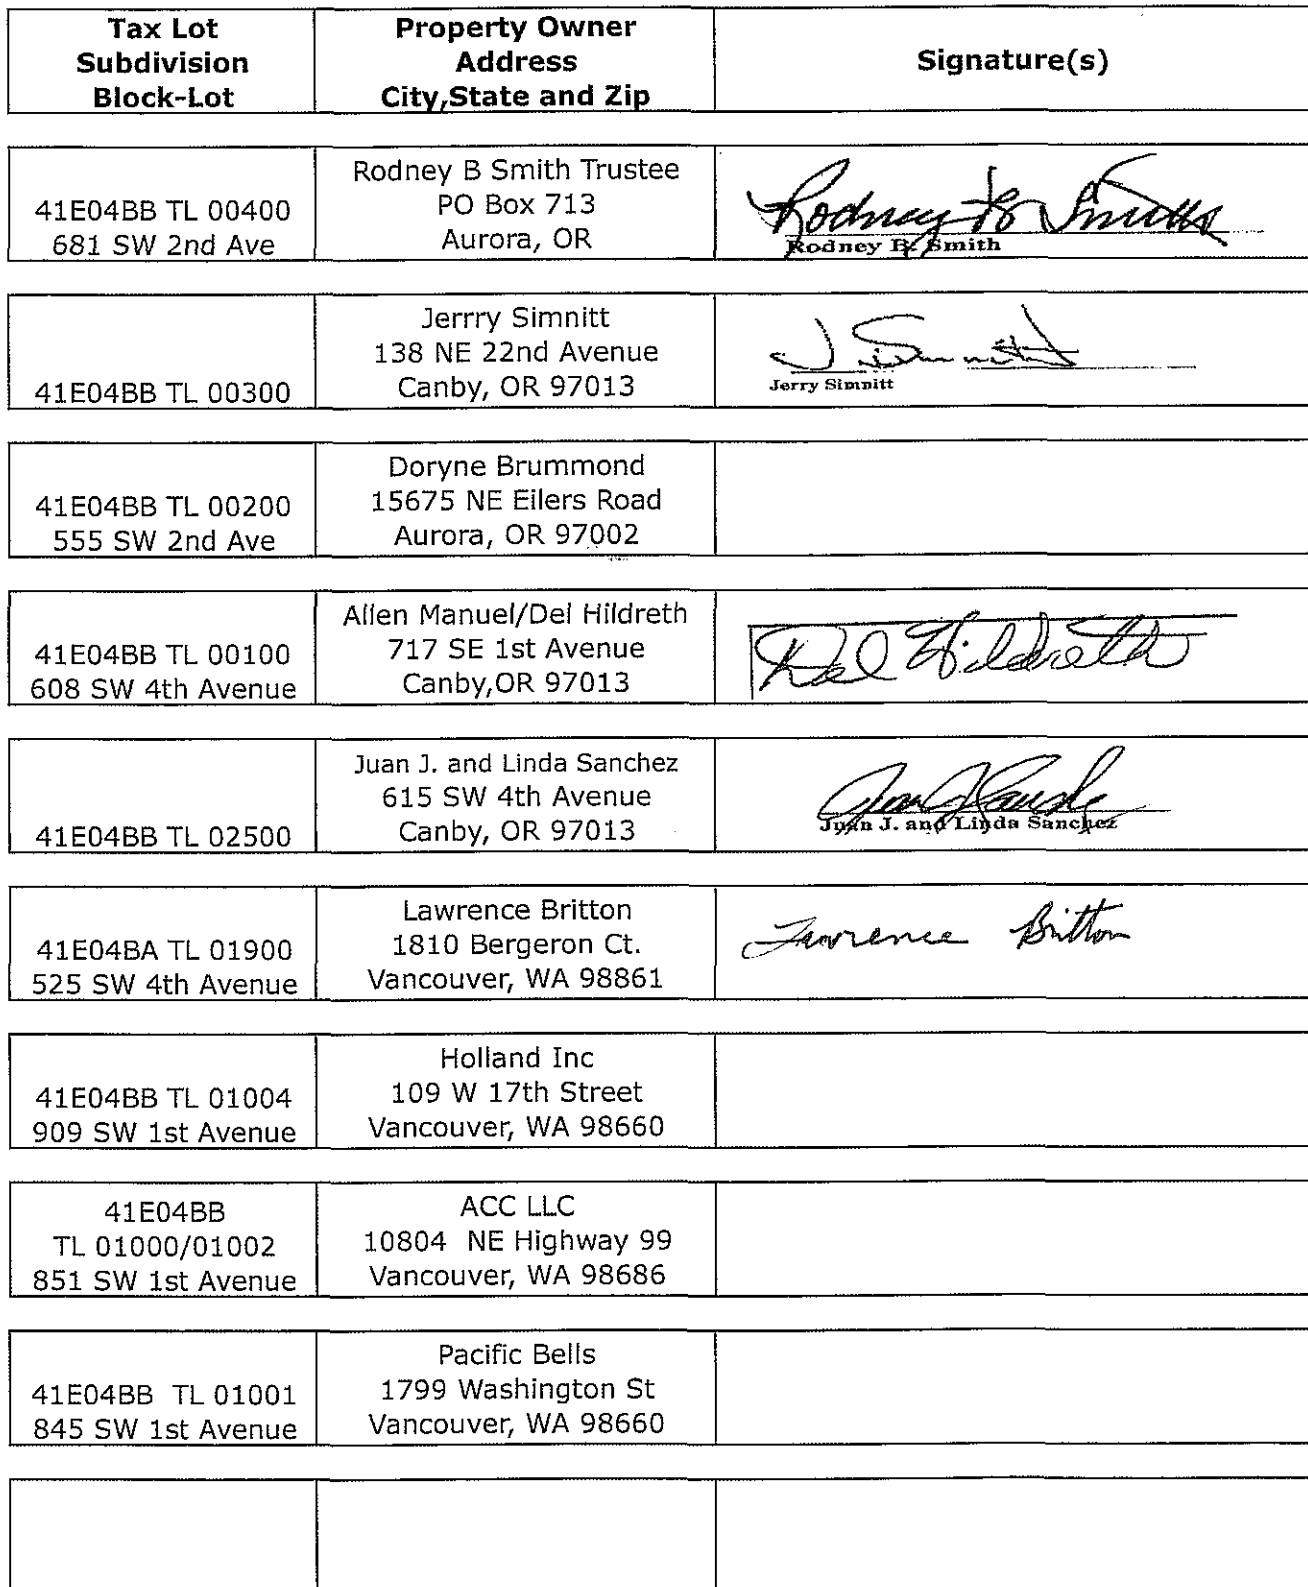 Tax Lot
Subdivision
Block-Lot
Property Owner
Address
City,State and Zip
Signature(s)
41E04BB TL 00400
681 SW 2nd Ave
Rodney B Smith Trustee
PO Box 713
Aurora, OR
Rodney B Smith
Rodney B. Smith
41E04BB TL 00300
Jerrry Simnitt
138 NE 22nd Avenue
Canby, OR 97013
J Simnitt
Jerry Simnitt
41E04BB TL 00200
555 SW 2nd Ave
Doryne Brummond
15675 NE Eilers Road
Aurora, OR 97002
41E04BB TL 00100
608 SW 4th Avenue
Allen Manuel/Del Hildreth
717 SE 1st Avenue
Canby,OR 97013
Del Hildreth
41E04BB TL 02500
Juan J. and Linda Sanchez
615 SW 4th Avenue
Canby, OR 97013
Juan J. and Linda Sanchez
41E04BA TL 01900
525 SW 4th Avenue
Lawrence Britton
1810 Bergeron Ct.
Vancouver, WA 98861
Lawrence Britton
41E04BB TL 01004
909 SW 1st Avenue
Holland Inc
109 W 17th Street
Vancouver, WA 98660
41E04BB
TL 01000/01002
851 SW 1st Avenue
ACC LLC
10804 NE Highway 99
Vancouver, WA 98686
41E04BB TL 01001
845 SW 1st Avenue
Pacific Bells
1799 Washington St
Vancouver, WA 98660